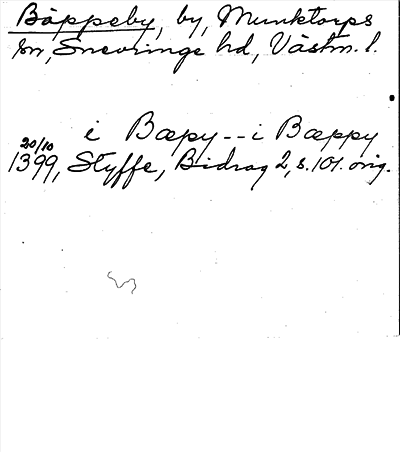 Bäppeby, by, Munktorps
sn, Snevringe hd, Västm. l.
i Bæpy -- i Bæppy
20/10
1399, Styffe, Bidrag 2, s. 101. orig.